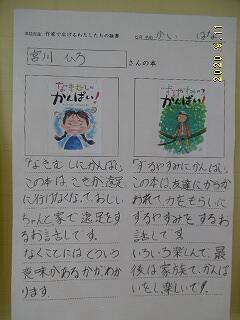 作家で広げるわたしたちの読書
かい はな
宮川 ひろ さんの本
なきむしにかんぱい!
ずるやすみにかんぱい!
「なきむしにかんぱい」
この本は、こきが遠足
に行けなくなって、おじい
ちゃんと家で遠足をす
るお話しです。
なくことにはどういう
意味があるかがわか
ります。
「ずるやすみにかんぱい」
この本は、友達にからか
われて、力をもらいに
ずるやすみをするお
話しです。
いろいろ楽しんで、最
後は家族で、かんぱ
いをし、楽しいです。
2020 9 11